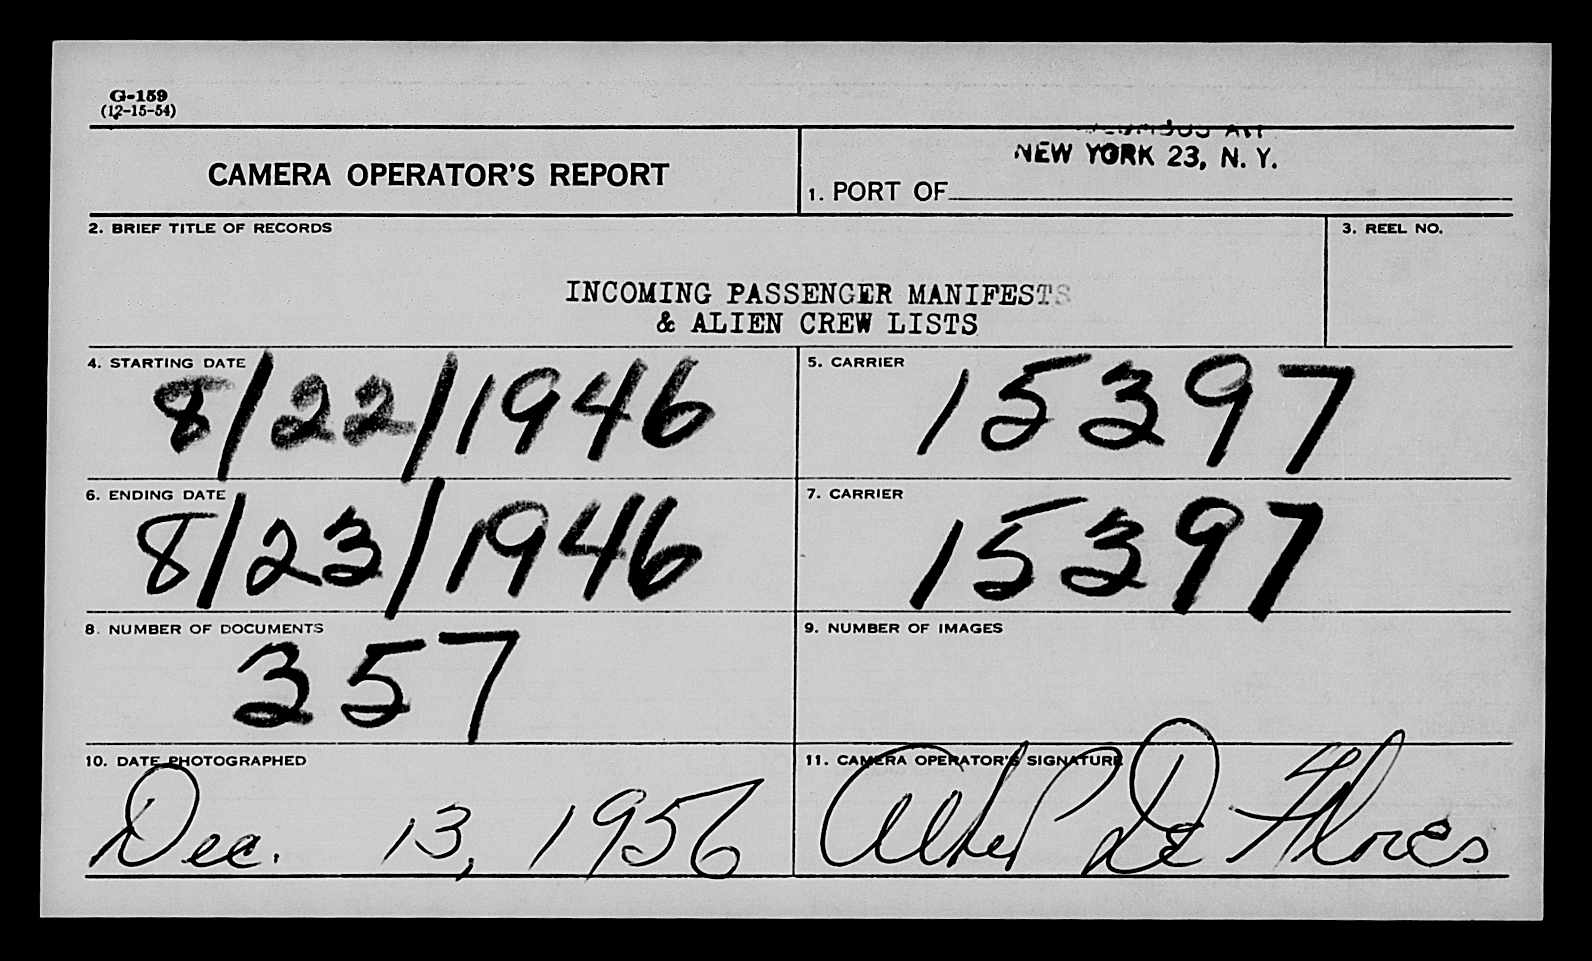 G-159
(12-15-54)
CAMERA OPERATOR'S REPORT
NEW YORK 23, N. Y.
1. PORT OF
2. BRIEF TITLE OF RECORDS
3. REEL NO.
INCOMING PASSENGER MANIFESTS
& ALIEN CREW LISTS
4. STARTING DATE
8/22/1946
5. CARRIER
15397
6. ENDING DATE
8/23/1946
7. CARRIER
15397
8. NUMBER OF DOCUMENTS
357
9. NUMBER OF IMAGES
10. DATE PHOTOGRAPHED
Dec. 13, 1956
11. CAMERA OPERATOR'S SIGNATURE
De Flores